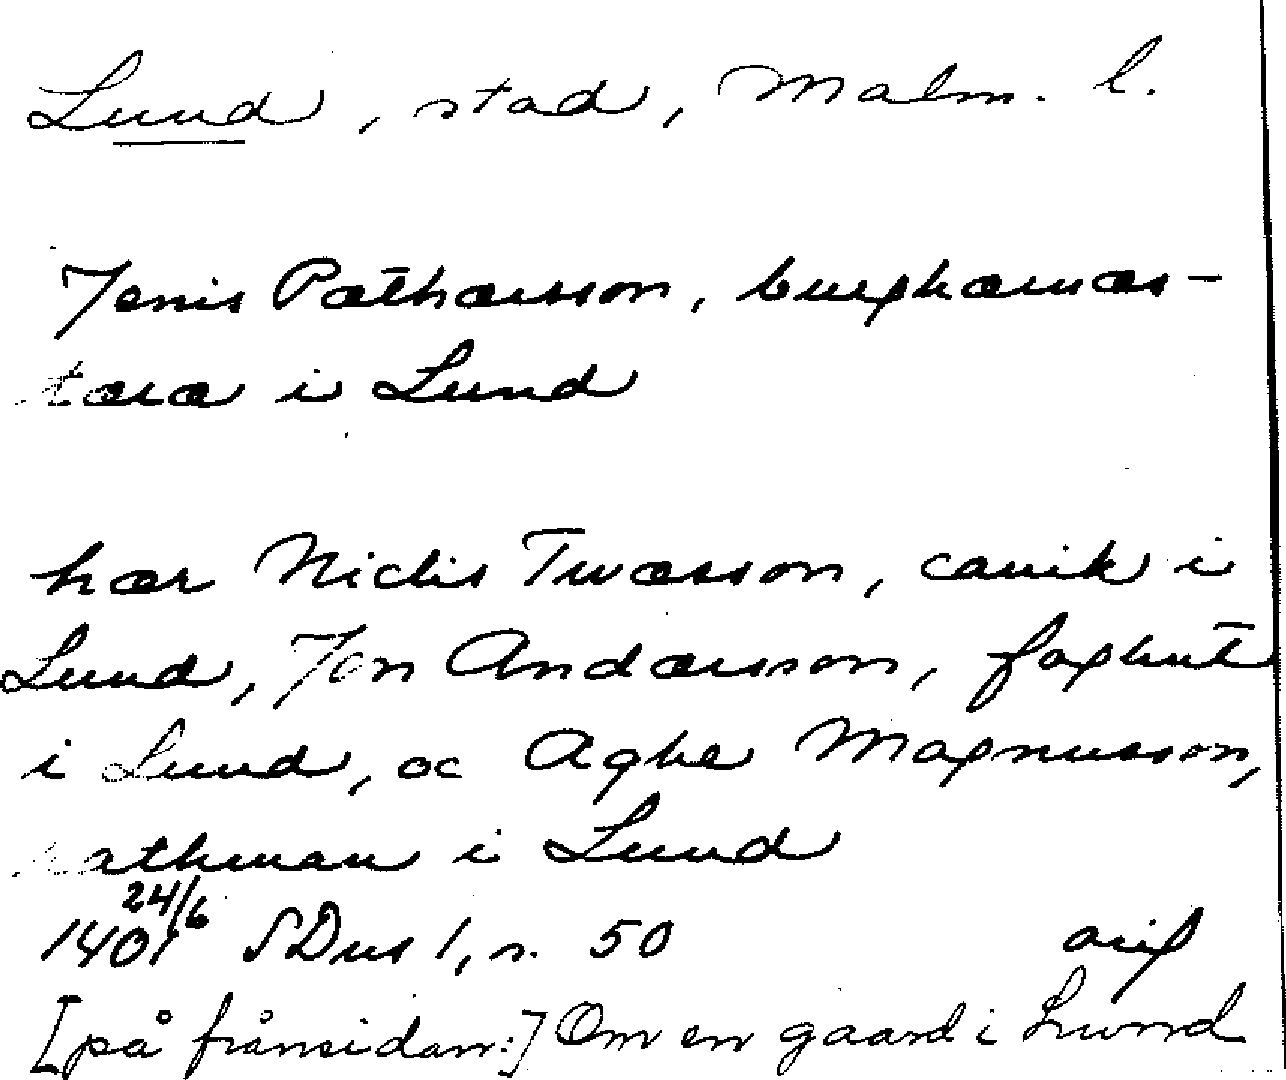 Lund, stad, Malm. l.
Jenis Pæthærsson, burghæmæs-
tæræ i Lund
hær Niclis Twæsson, canik i
Lund, Jon Andærsson, foghut
i Lund, oc Aghe Magnusson,
rathman i Lund
24/6
1401 SDns 1, s. 50 orig
[på frånsidan:] Om en gaard i Lwnd